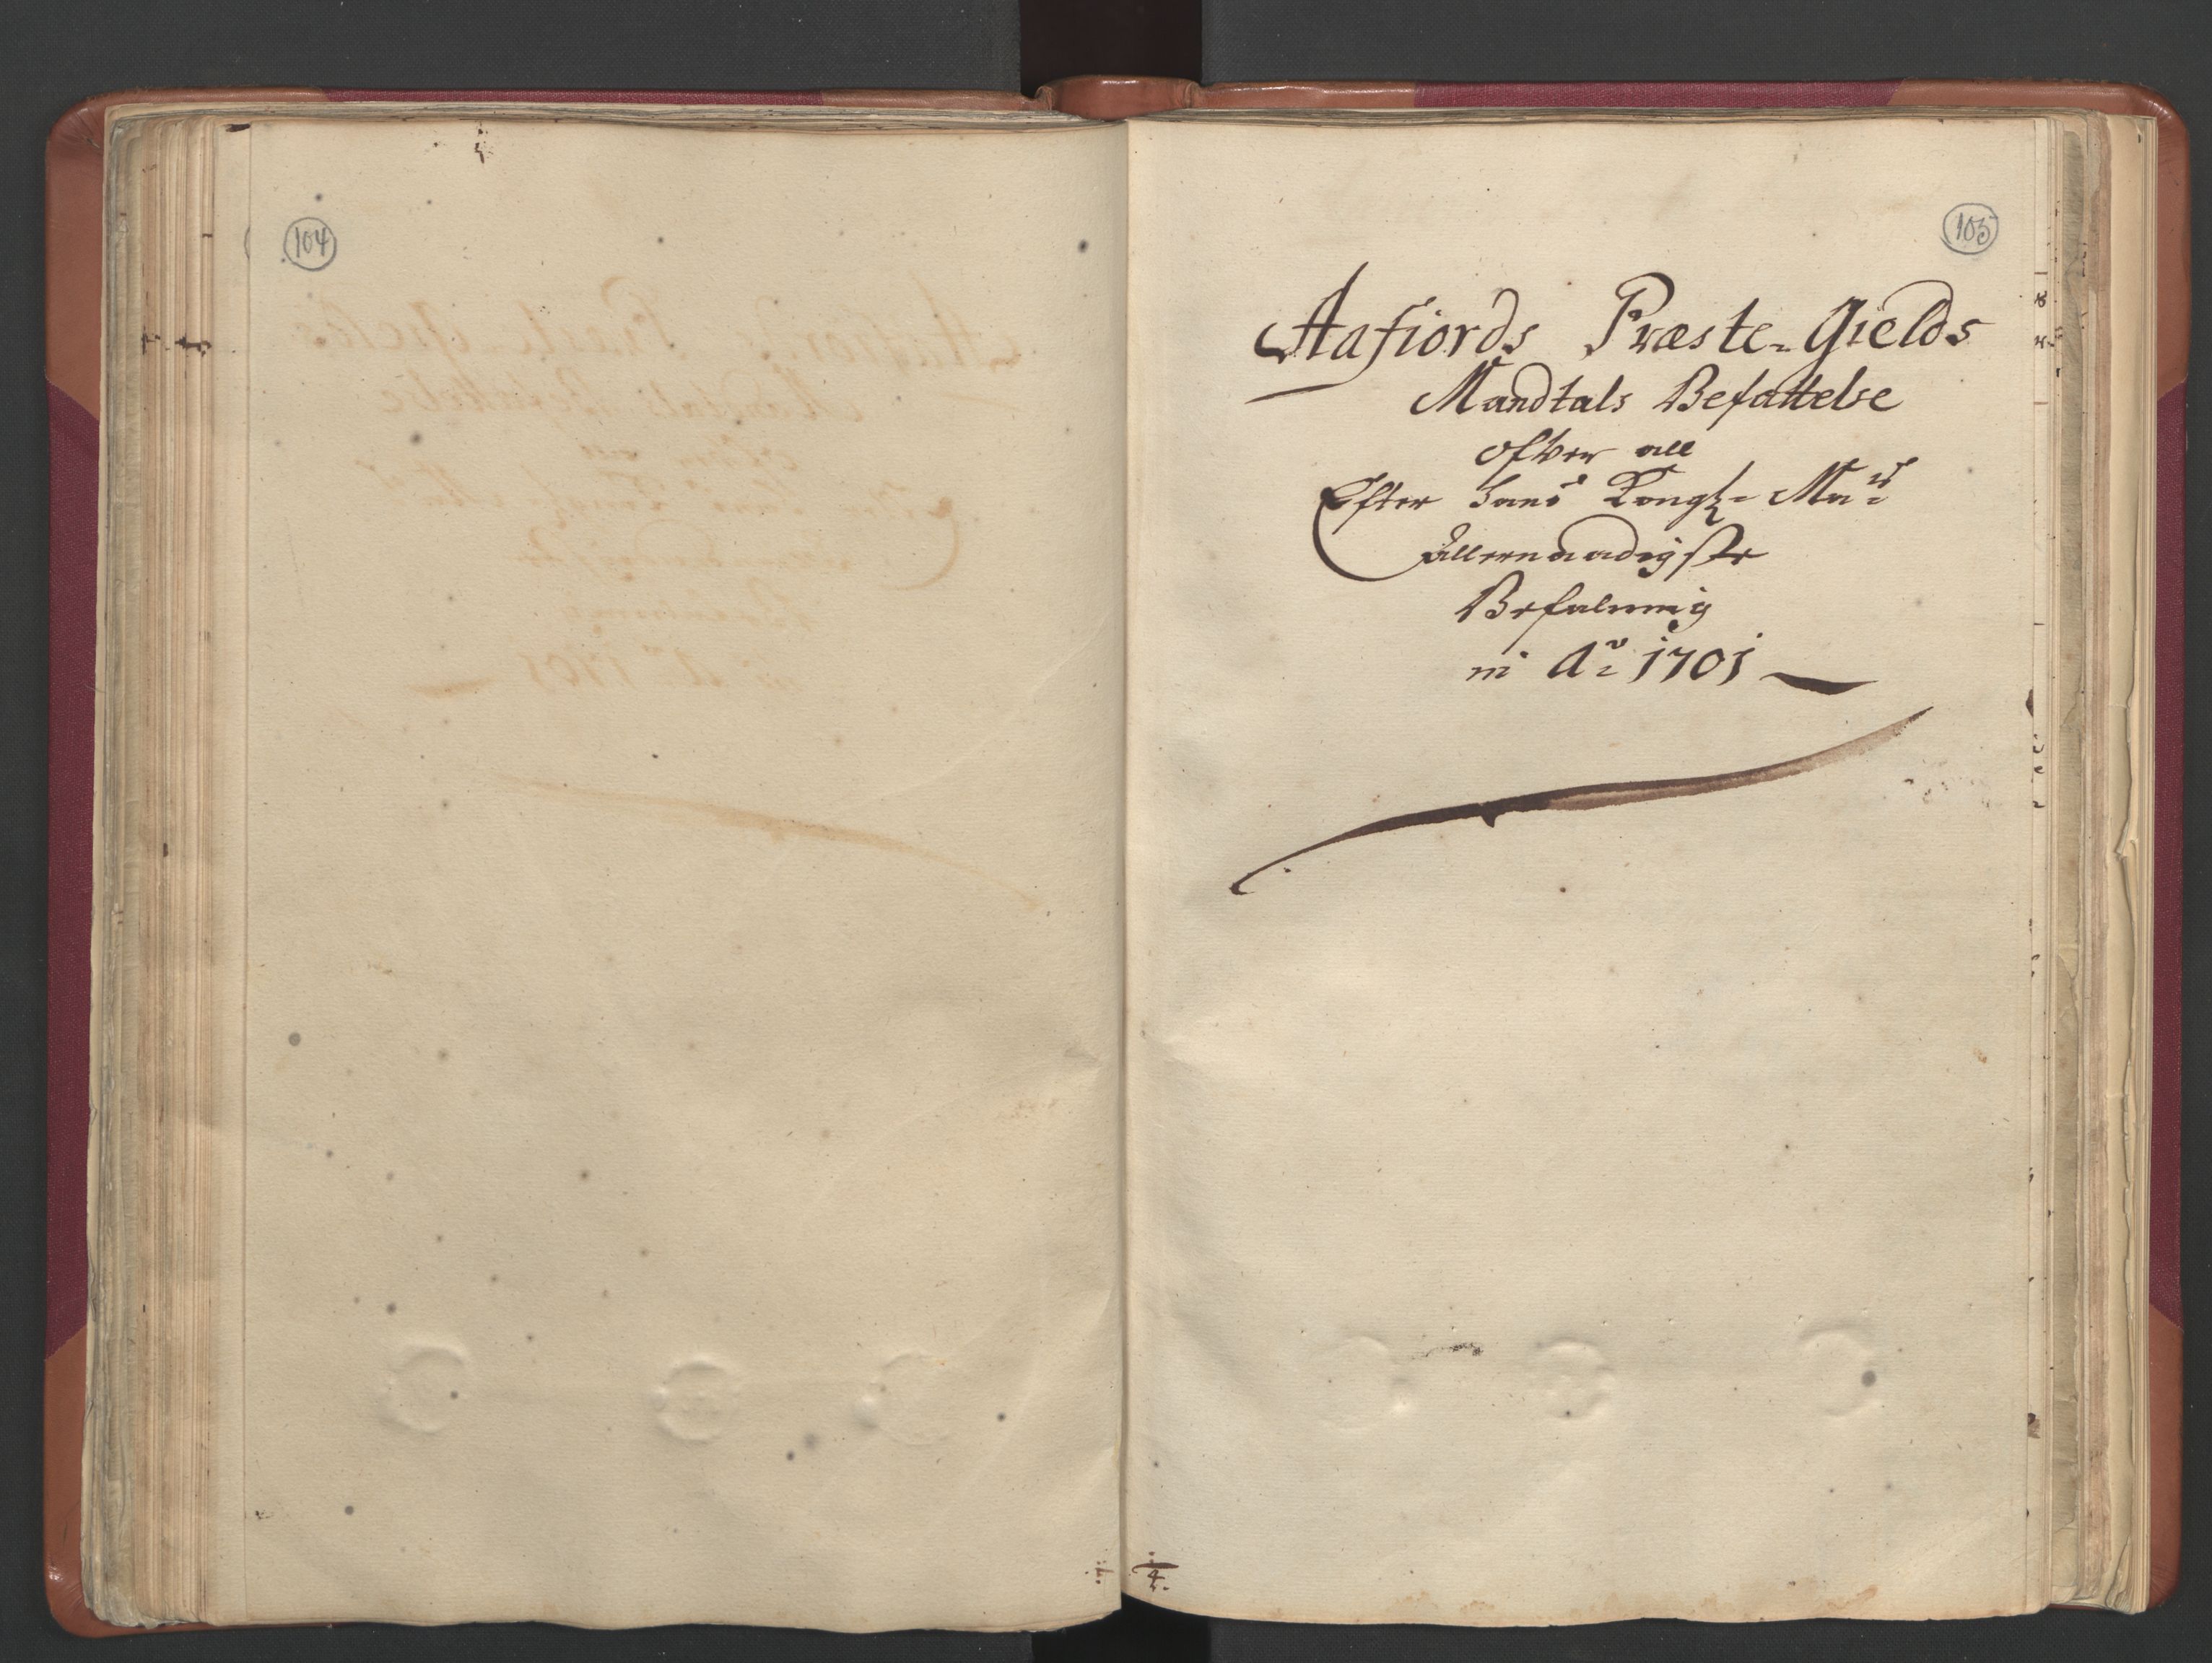 104
105
Aafiords Præste-Gields
Mandtals Befattelse
ofver all
Efter Hans Kongl: May:ts
allernaadigste
Befalning
in A:o 1701
4.